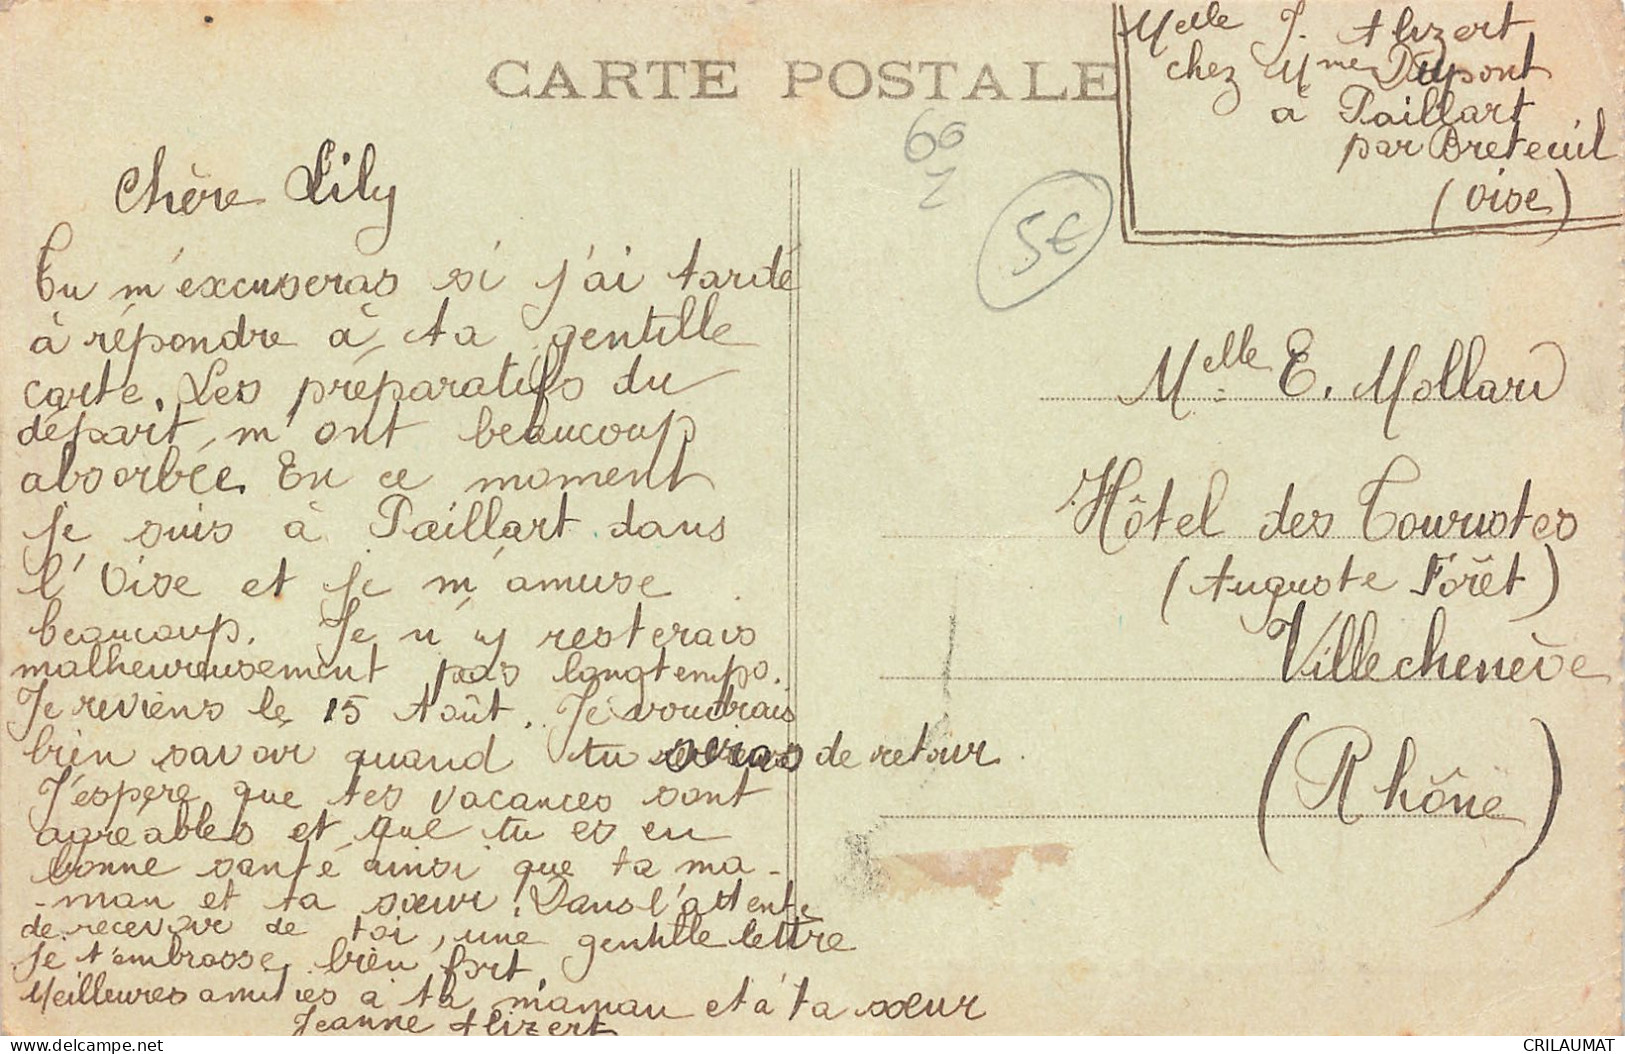 CARTE POSTALE
Melle J. Alizert
chez Mme Dupont
à Paillart
par Breteuil
(Oise)
60
5€
Chère Lily
Tu m'excuseras si j'ai tardé
à répondre à ta gentille
carte. Les préparatifs du
départ m'ont beaucoup
absorbée. En ce moment
je suis à Paillart dans
l'Oise et je m'amuse
beaucoup. Je n'y resterais
malheureusement pas longtemps.
Je reviens le 15 Août. Je voudrais
bien savoir quand tu seras de retour
J'espère que tes vacances sont
agréables et que tu es en
bonne santé ainsi que ta ma-
-man et ta sœur. Dans l'attente
de recevoir de toi, une gentille lettre
je t'embrasse bien fort.
Meilleures amitiés à ta maman et à ta sœur
Jeanne Alizert
Melle E. Mollard
Hôtel des Touristes
(Auguste Forêt)
Villechenève
(Rhône)
delcampe.net
CRILAUMAT